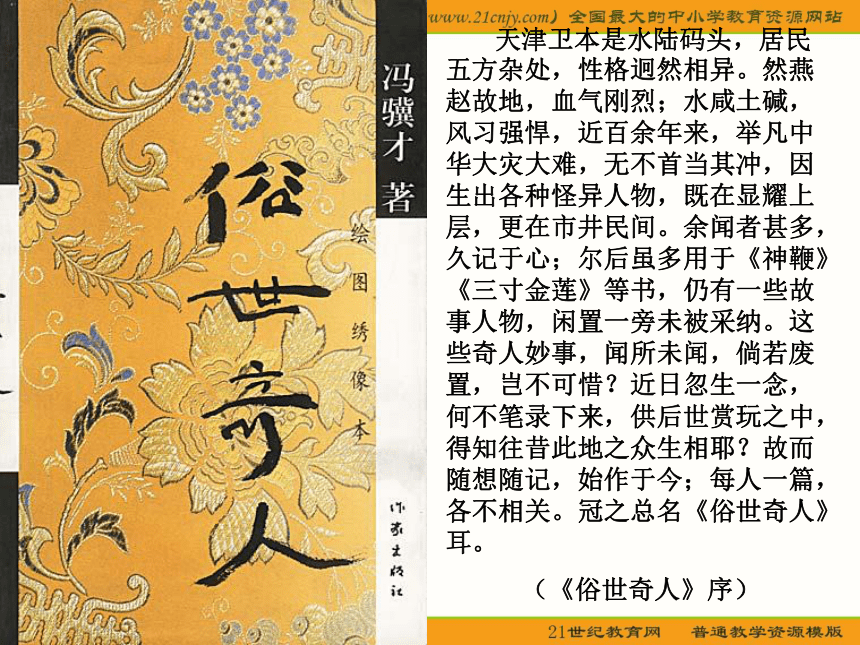 www.21cnjy.com）全国最大的中小学教育资源网站
冯骥才 著
俗世奇人
绘图绣像本
作家出版社
天津卫本是水陆码头，居民
五方杂处，性格迥然相异。然燕
赵故地，血气刚烈；水咸土碱，
风习强悍，近百余年来，举凡中
华大灾大难，无不首当其冲，因
生出各种怪异人物，既在显耀上
层，更在市井民间。余闻者甚多，
久记于心；尔后虽多用于《神鞭》
《三寸金莲》等书，仍有一些故
事人物，闲置一旁未被采纳。这
些奇人妙事，闻所未闻，倘若废
置，岂不可惜？近日忽生一念，
何不笔录下来，供后世赏玩之中，
得知往昔此地之众生相耶？故而
随想随记，始作于今；每人一篇，
各不相关。冠之总名《俗世奇人》
耳。
（《俗世奇人》序）
21世纪教育网 普通教学资源模版